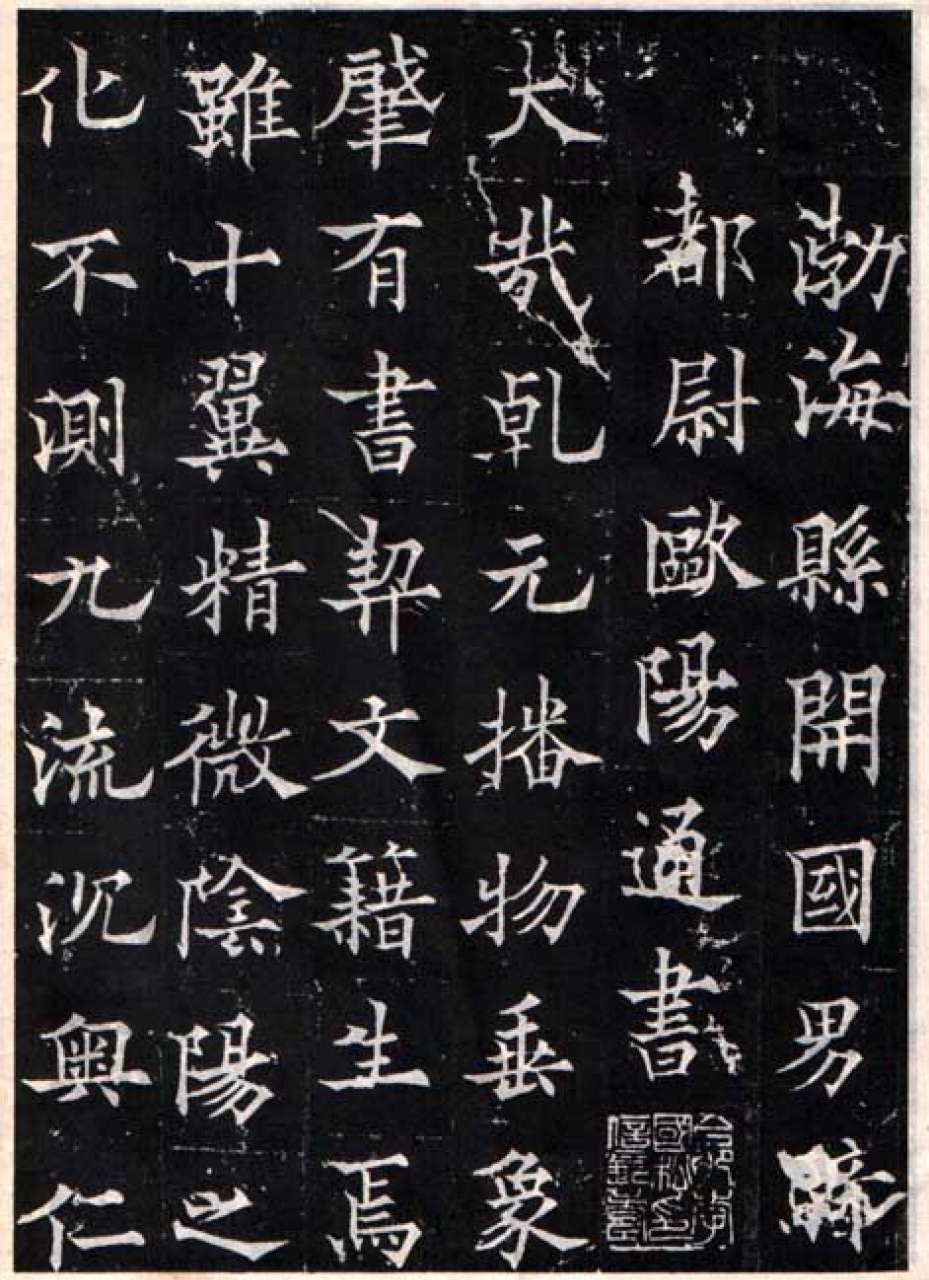 渤海縣開國男騎
都尉歐陽通書
大哉乹元播物垂象
肇有書契文籍生焉
雖十翼精微陰陽之
化不測九流沉奥仁